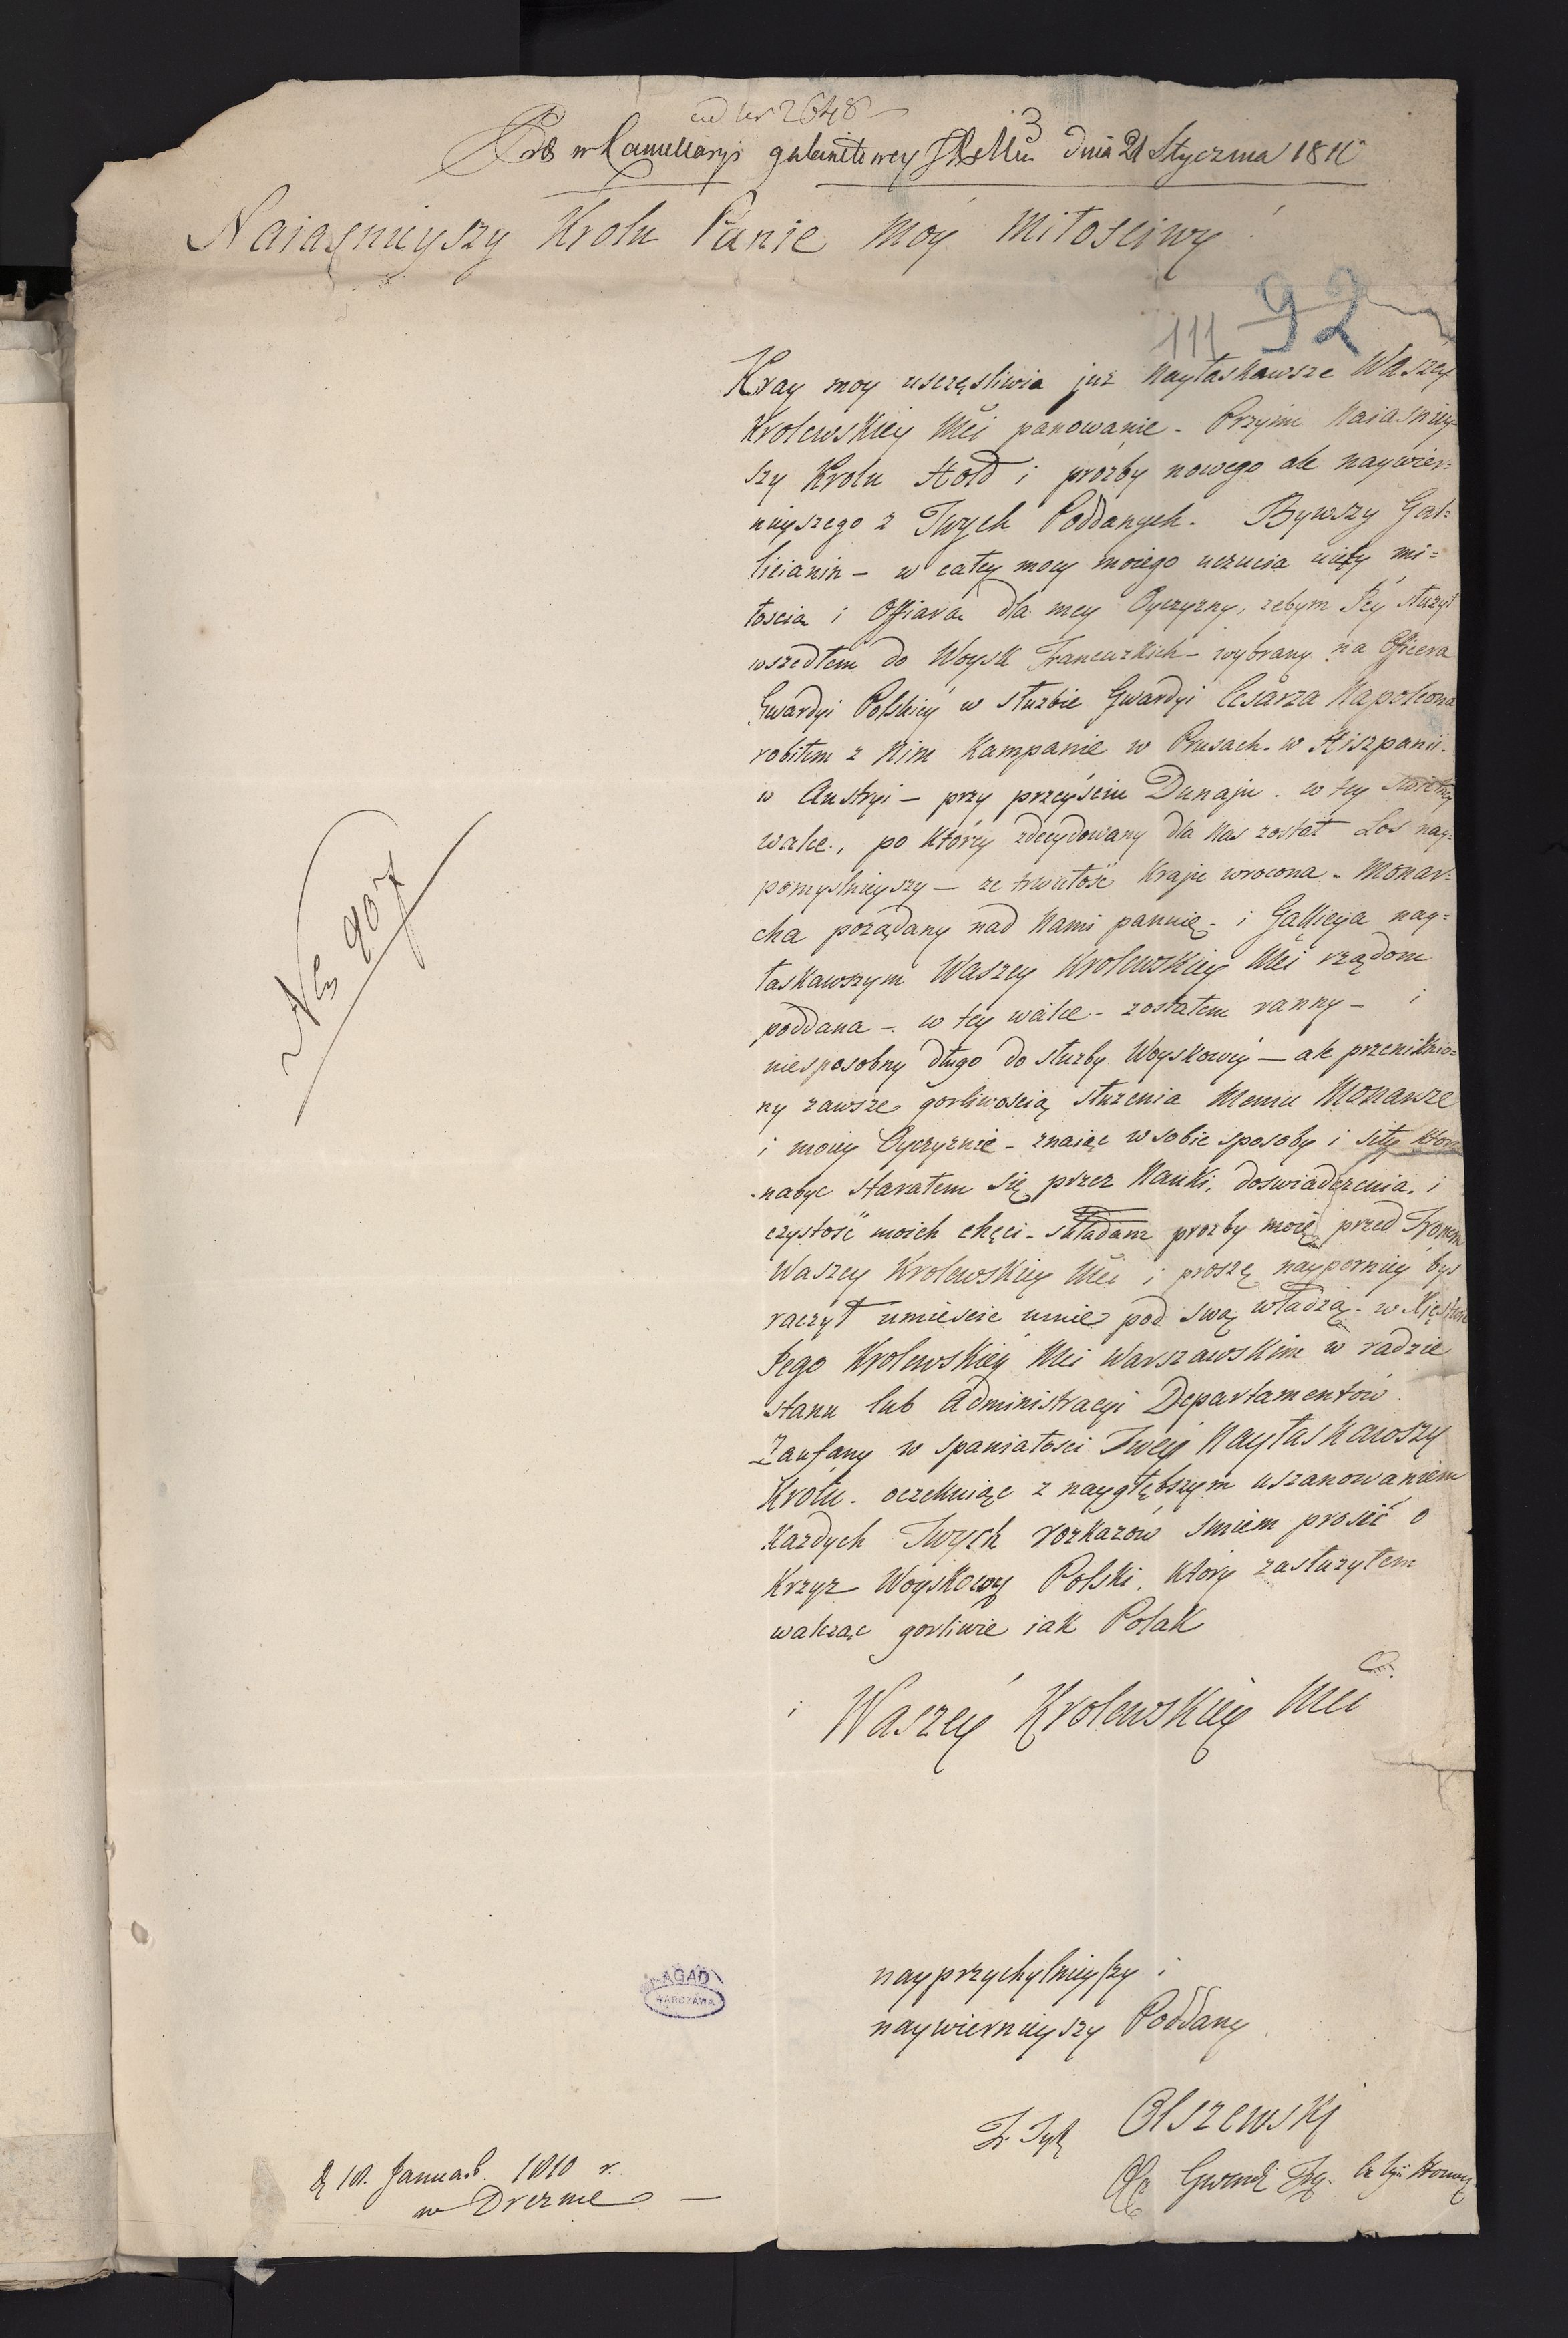 ad Nr 2648
Prs w Kancellaryi gabinetowey JKrMci dnia 21 Stycznia 1810
Naiaśnieyszy Krolu Panie Moy Miłosciwy!
111 92
Kray moy usczęsliwia już Nayłaskawsze Waszey
Krolewskiey Mci panowanie - Przyim Naiasniey-
szy Krolu Hołd i prozby nowego ale naywier=
nieyszego z Twych Poddanych. Bywszy Gal=
licianin - w całey mocy moiego uczucia mi=
łoscia i Offiara dla mey Oyczyzny, zebym Jey służył
wszedłem do Woysk Francuzkich - wybrany na Oficera
Gwardyi Polskiey w służbie Gwardyi Cesarza Napoleona
robiłem z Nim Kampanie w Prusach - w Hiszpanii -
w Austryi - przy przeyściu Dunaju - w tey swietney
walce, po którey zdecydowany dla Nas został Los nay=
pomyslnieyszy - ze trwałość Kraju wrocona - Monar=
cha porządany nad Nami pannie - i Gallicya nay=
łaskawszym Waszey Krolewskiey Mci rządom
poddana - w tey walce - zostałem ranny - i
niesposobny długo do służby Woyskowey - ale przeniknio=
ny zawsze gorliwością służenia Memu Monarsze
i moiey Oyczyznie - znaiąc w sobie sposoby i siły które
nabyc starałem się przez Nauki, doswiadczenia, i
czystość moich chęci - składam prozby moię przed Tronem
Waszey Krolewskiey Mci i proszę naypokorniey bys
raczył umiescic mnie pod swą władzą - w Xięstwie
Jego Krolewskiey Mci Warszawskim w radzie
stanu lub Administracyi Departamentów.
Zaufany w spaniałosci Twey Nayłaskawszy
Krolu - oczekuiąc z naygłębszym uszanowaniem
Kazdych Twych rozkazów smiem prosić o
Krzyz Woyskowy Polski, który zasłużyłem
walcząc gorliwie iak Polak
i Waszey Krolewskiey Mci
No 907
nayprzychylnieyszy i
naywiernieyszy Poddany
Olszewski
Of: Gwardi
AGAD
WARSZAWA
d 10. Januar. 1810 r.
w Dreznie -